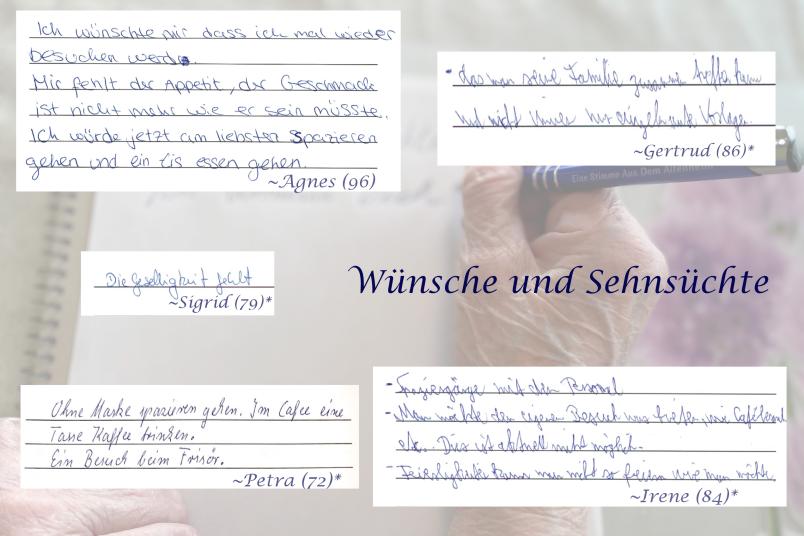 Ich wünschte mir dass ich mal wieder
besuchen werde.
Mir fehlt der Appetit, der Geschmack
ist nicht mehr wie er sein müsste.
Ich würde jetzt am liebsten Spazieren
gehen und ein Eis essen gehen.
~Agnes (96)
- das man seine Familie zusammen treffen kann
und nicht immer nur
~Gertrud (86)*
Eine Stimme Aus Dem Altenheim
Die Geselligkeit fehlt
~Sigrid (79)*
Wünsche und Sehnsüchte
Ohne Maske spazieren gehen. Im Cafee eine
Tasse Kaffee trinken.
Ein Besuch beim Frisör.
~Petra (72)*
- Spaziergänge mit dem Personal
- Man möchte den eigenen Besuch treffen, im
etc. Dies ist aktuell nicht möglich.
- Feierlichkeiten kann man nicht so feiern wie man möchte
~Irene (84)*